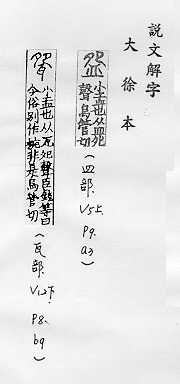 說文解字
大徐本
盌
小盂也从皿夗
聲烏管切
(皿部. V5上. P9. a3)
㼝
小盂也从瓦夗聲臣鉉等曰
今俗別作椀非是烏管切
(瓦部. V12下. P8. b9)